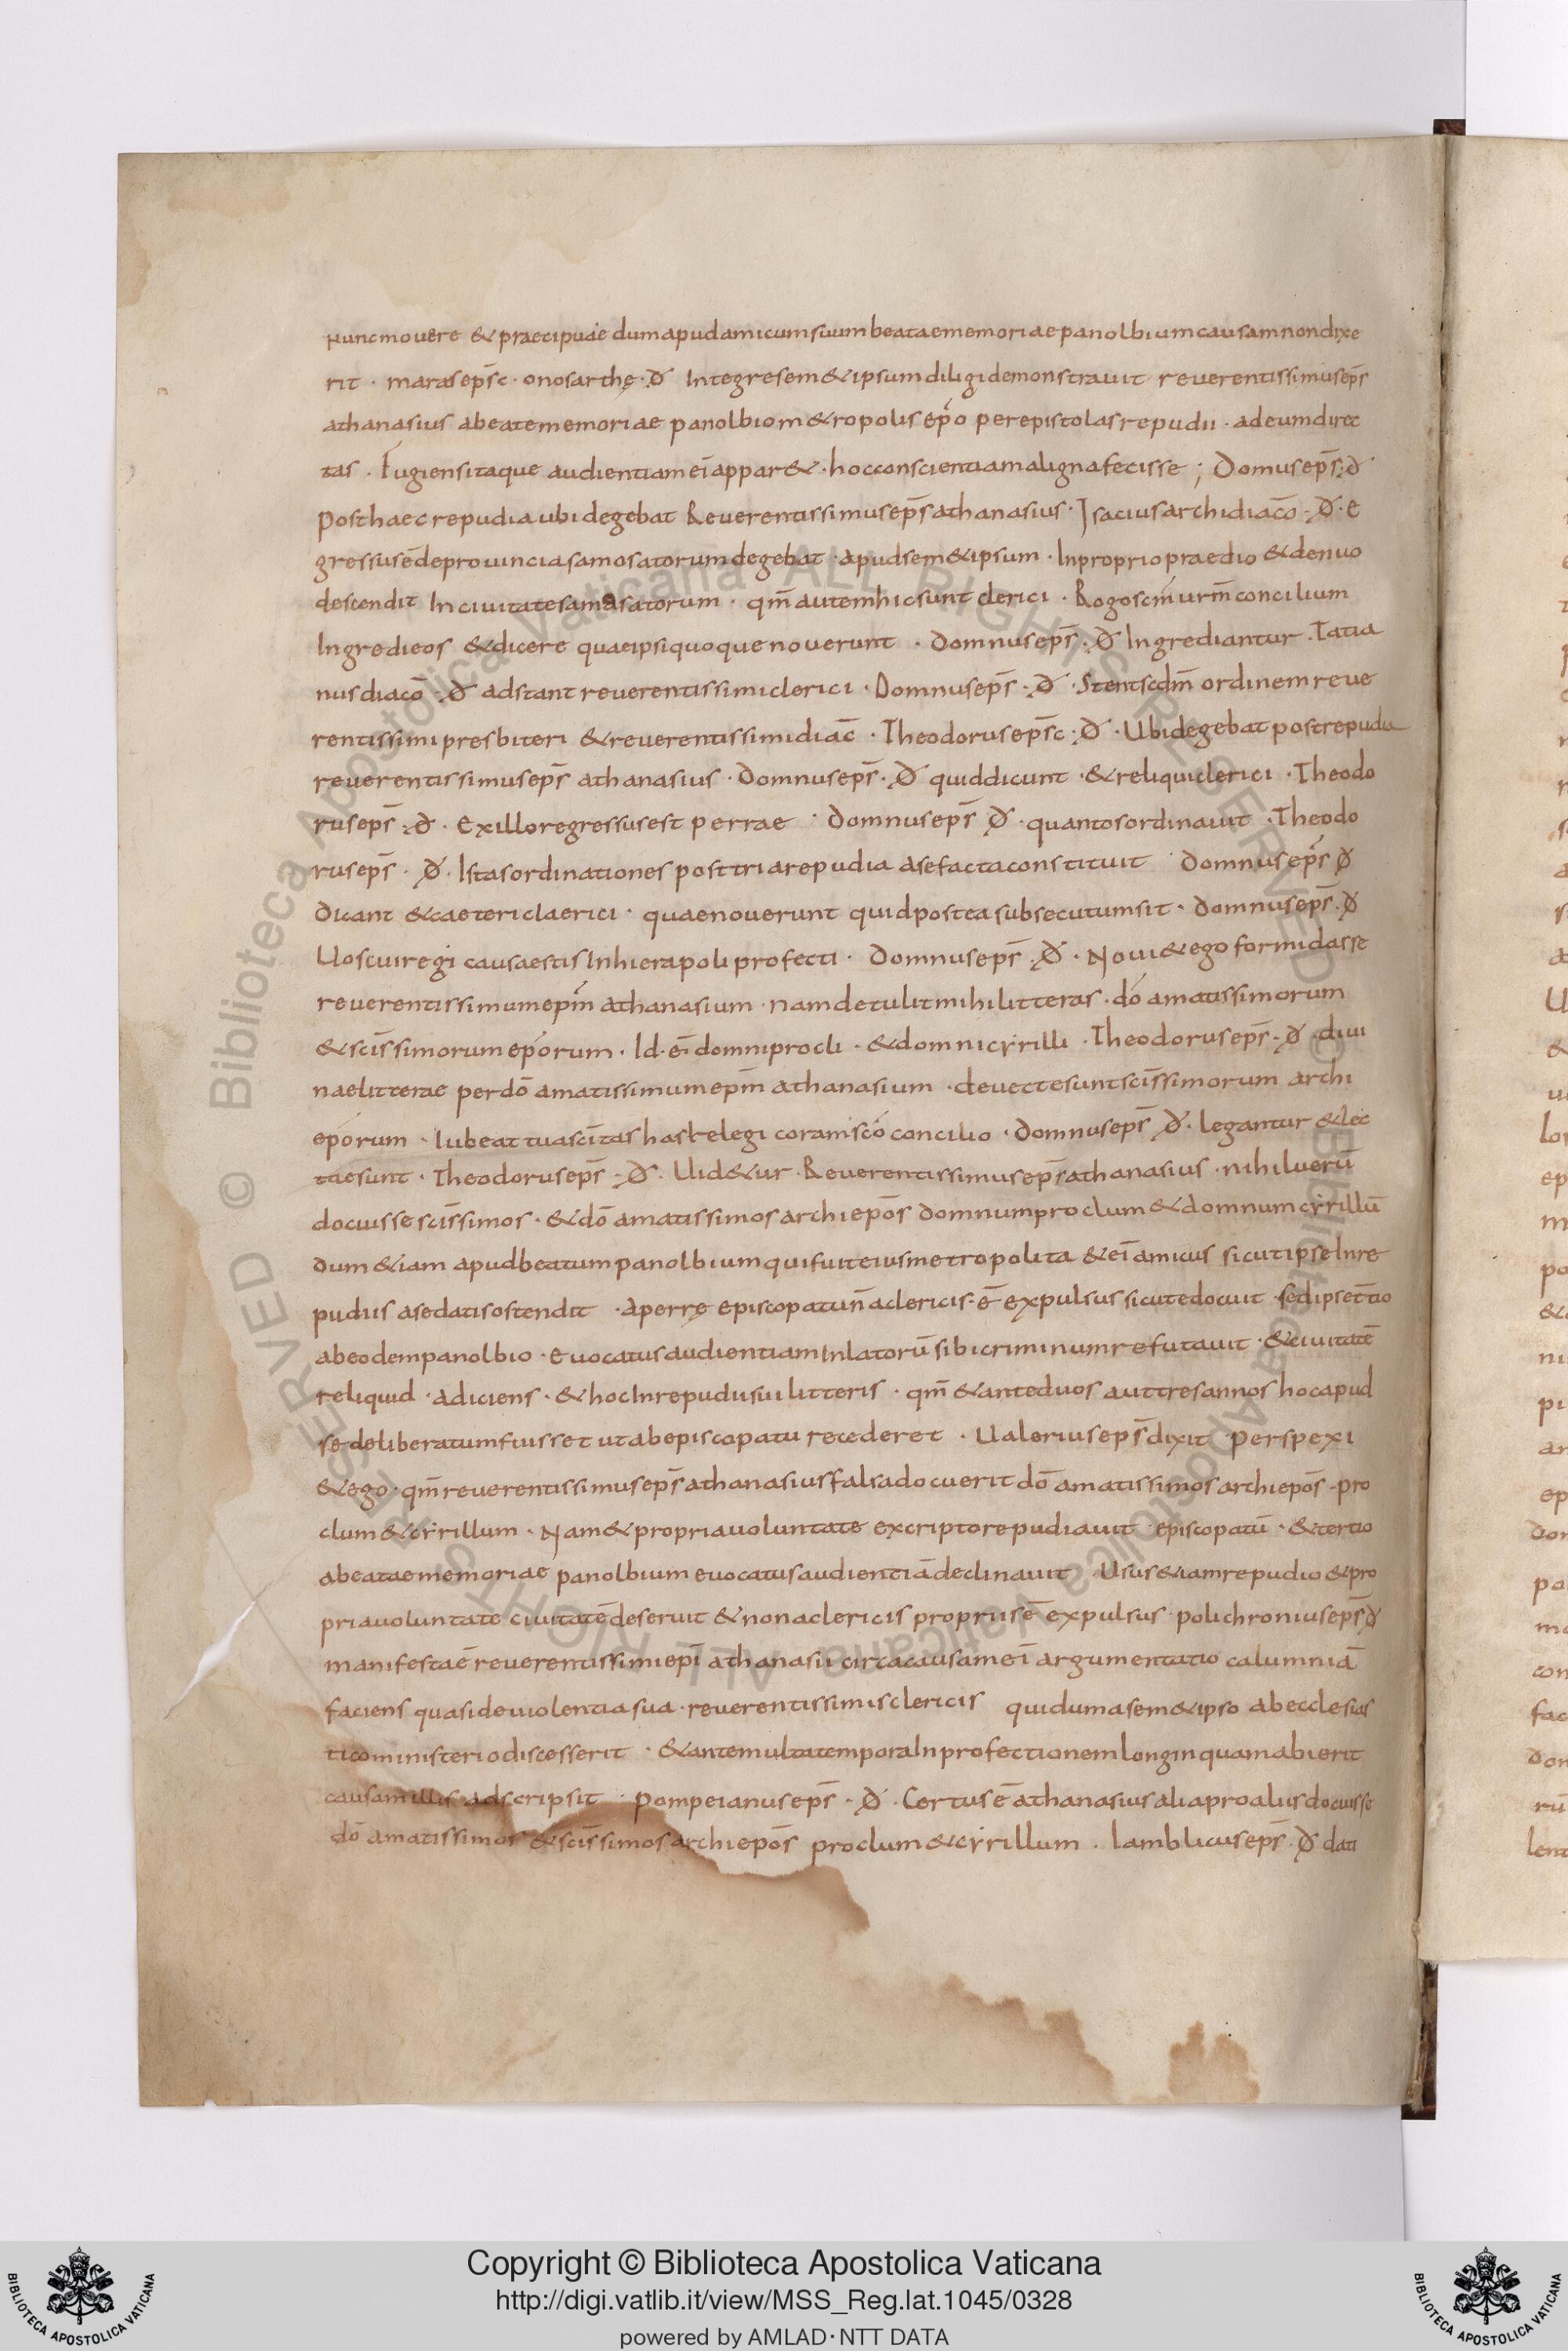 nunc movere & praecipuae dum apud amicum suum beatae memoriae panolbium causam non dixe
rit · maras ep̄sc · onosarthę · đ Inte gre sem & ipsum diligi demonstravit reverentissimus ep̄s
athanasius a beate memoriae panolbio m&ropolis ep̄o per epistolas repudii · ad eum direc
tas · Fugiens itaque audientiam ei appar& · hoc conscientia maligna fecisse ; Domus ep̄s · đ
Post haec repudia ubi degebat Reverentissimus ep̄s athanasius · Isacius archidiac̄o · đ · e
gressus ē de provincia samosatorum degebat · apud sem&ipsum · In proprio praedio & denuo
descendit In civitate samasatorum · qm̄ autem hic sunt clerici · Rogo scm̄ urm̄ concilium
Ingredi eos & dicere quae ipsi quoque noverunt · Domnus ep̄s · đ Ingrediantur · Tatia
nus diac̄o · đ adstant reverentissimi clerici · Domnus ep̄s · đ · Stent scdm̄ ordinem reve
rentissimi presbiteri & reverentissimi diac̄ · Theodorus ep̄sc · đ · Ubi degebat post repudia
reverentissimus ep̄s athanasius · Domnus ep̄s · đ quid dicunt · & reliqui clerici · Theodo
rus ep̄s · đ · Ex illo regressus est perrae · Domnus ep̄s đ · quantos ordinavit · Theodo
rus ep̄s · đ · Istas ordinationes post tria repudia a se facta constituit · Domnus ep̄s đ
Dicant & caeteri claerici · quae noverunt quid postea subsecutum sit · Domnus ep̄s · đ
Uos cuiregi causa estis In hierapoli profecti · Domnus ep̄s · đ · Novi & ego formidasse
reverentissimum ep̄m athanasium · nam detulit mihi litteras · dō amatissimorum
& scīssimorum ep̄orum · Id · ē domni procli · & domni cyrilli · Theodorus ep̄s · đ · divi
nae litterae per dō amatissimum ep̄m athanasium · devecte sunt scīssimorum archi
ep̄orum · Iubeat tua scītas has relegi coram scō concilio · Domnus ep̄s đ · legantur & lec
tae sunt · Theodorus ep̄s · đ · Uid&ur · Reverentissimus ep̄s athanasius · nihil verū
docuisse scīssimos · & dō amatissimos archiep̄os domnum proclum & domnum cyrillū
dum &iam apud beatum panolbium qui fuit eius metropolita & ei amicus sicut ipse In re
pudiis a se datis ostendit · a perrę episcopatu n̄ a clericis · ē expulsus sicut edocuit · sed ipse t̄tio
ab eodem panolbio · evocatus audientiam Inlatorū sibi criminum refutavit · & civitatē
reliquid · adiciens · & hoc In repudii sui litteris · qm̄ & ante duos aut tres annos hoc apud
se deliberatum fuisset ut ab episcopatu recederet · Ualerius ep̄s dixit · perspexi
& ego · qm̄ reverentissimus ep̄s athanasius falsa docuerit dō amatissimos archiep̄os · pro
clum & cyrillum · Nam & propria voluntate excripto repudiavit episcopatū · & tertio
a beatae memoriae panolbium evocatus audientiā declinavit · Usus &iam repudio & pro
pria voluntate civitatē deseruit & non a clericis propriis ē expulsus · polichronius ep̄s đ
manifesta ē reverentissimi ep̄i athanasii circa causam ei argumentatio calumniā
faciens quasi de violentia sua · reverentissimis clericis qui dum a sem&ipso ab ecclesias
tico ministerio discesserit · & ante multa tempora In profectionem longinquam abierit
causam illis adscripsit · pompeianus ep̄s · đ · Certus ē athanasius alia pro aliis docuisse
dō amatissimos & scīssimos archiep̄os proclum & cyrillum · Iamblicus ep̄s · đ dati
Copyright © Biblioteca Apostolica Vaticana
http://digi.vatlib.it/view/MSS_Reg.lat.1045/0328
powered by AMLAD · NTT DATA